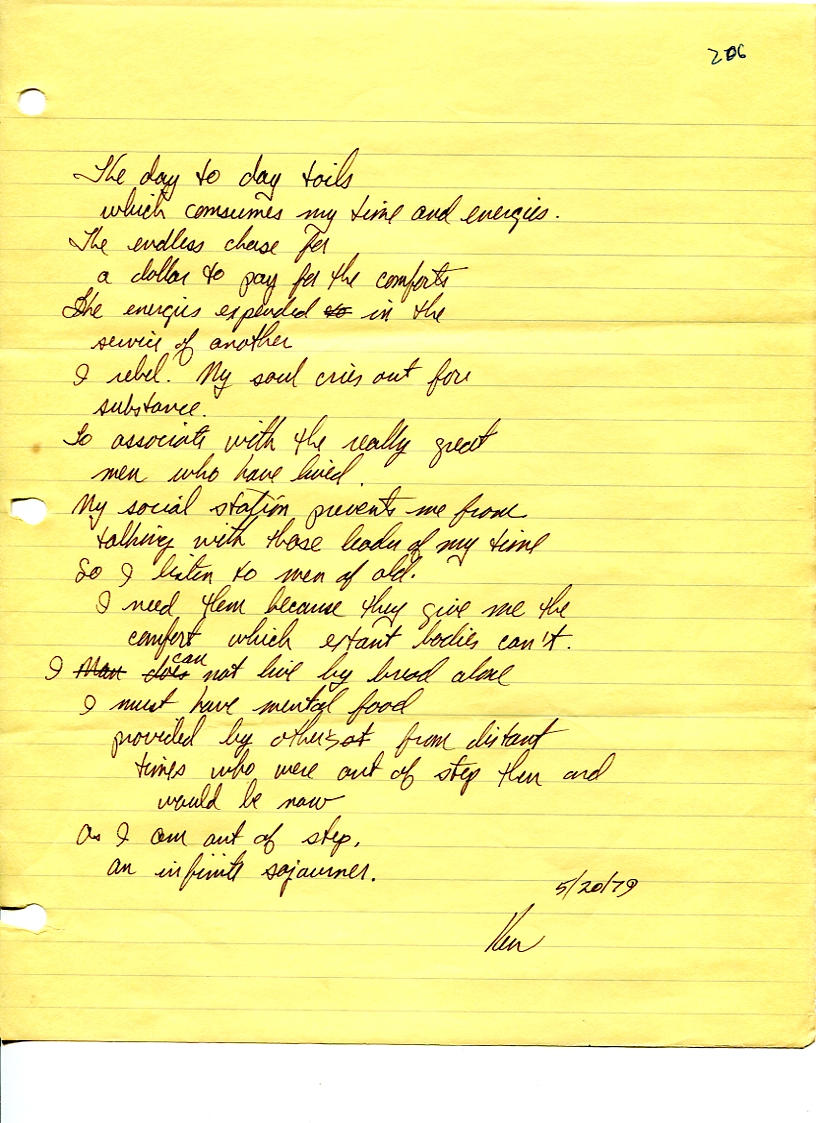 206
The day to day toils
which consumes my time and energies.
The endless chase for
a dollar to pay for the comforts
The energies expended to in the
service of another
I rebel. My soul cries out fore
substance.
To associate with the really great
men who have lived.
My social station prevents me from
talking with those leader of my time
So I listen to men of old.
I need them because they give me the
comfort which extant bodies can't.
I Man does can not live by bread alone
I must have mental food
provided by others from distant
times who were out of step then and
would be now
As I am out of step.
An infinite sojourner.
5/20/79
Ken